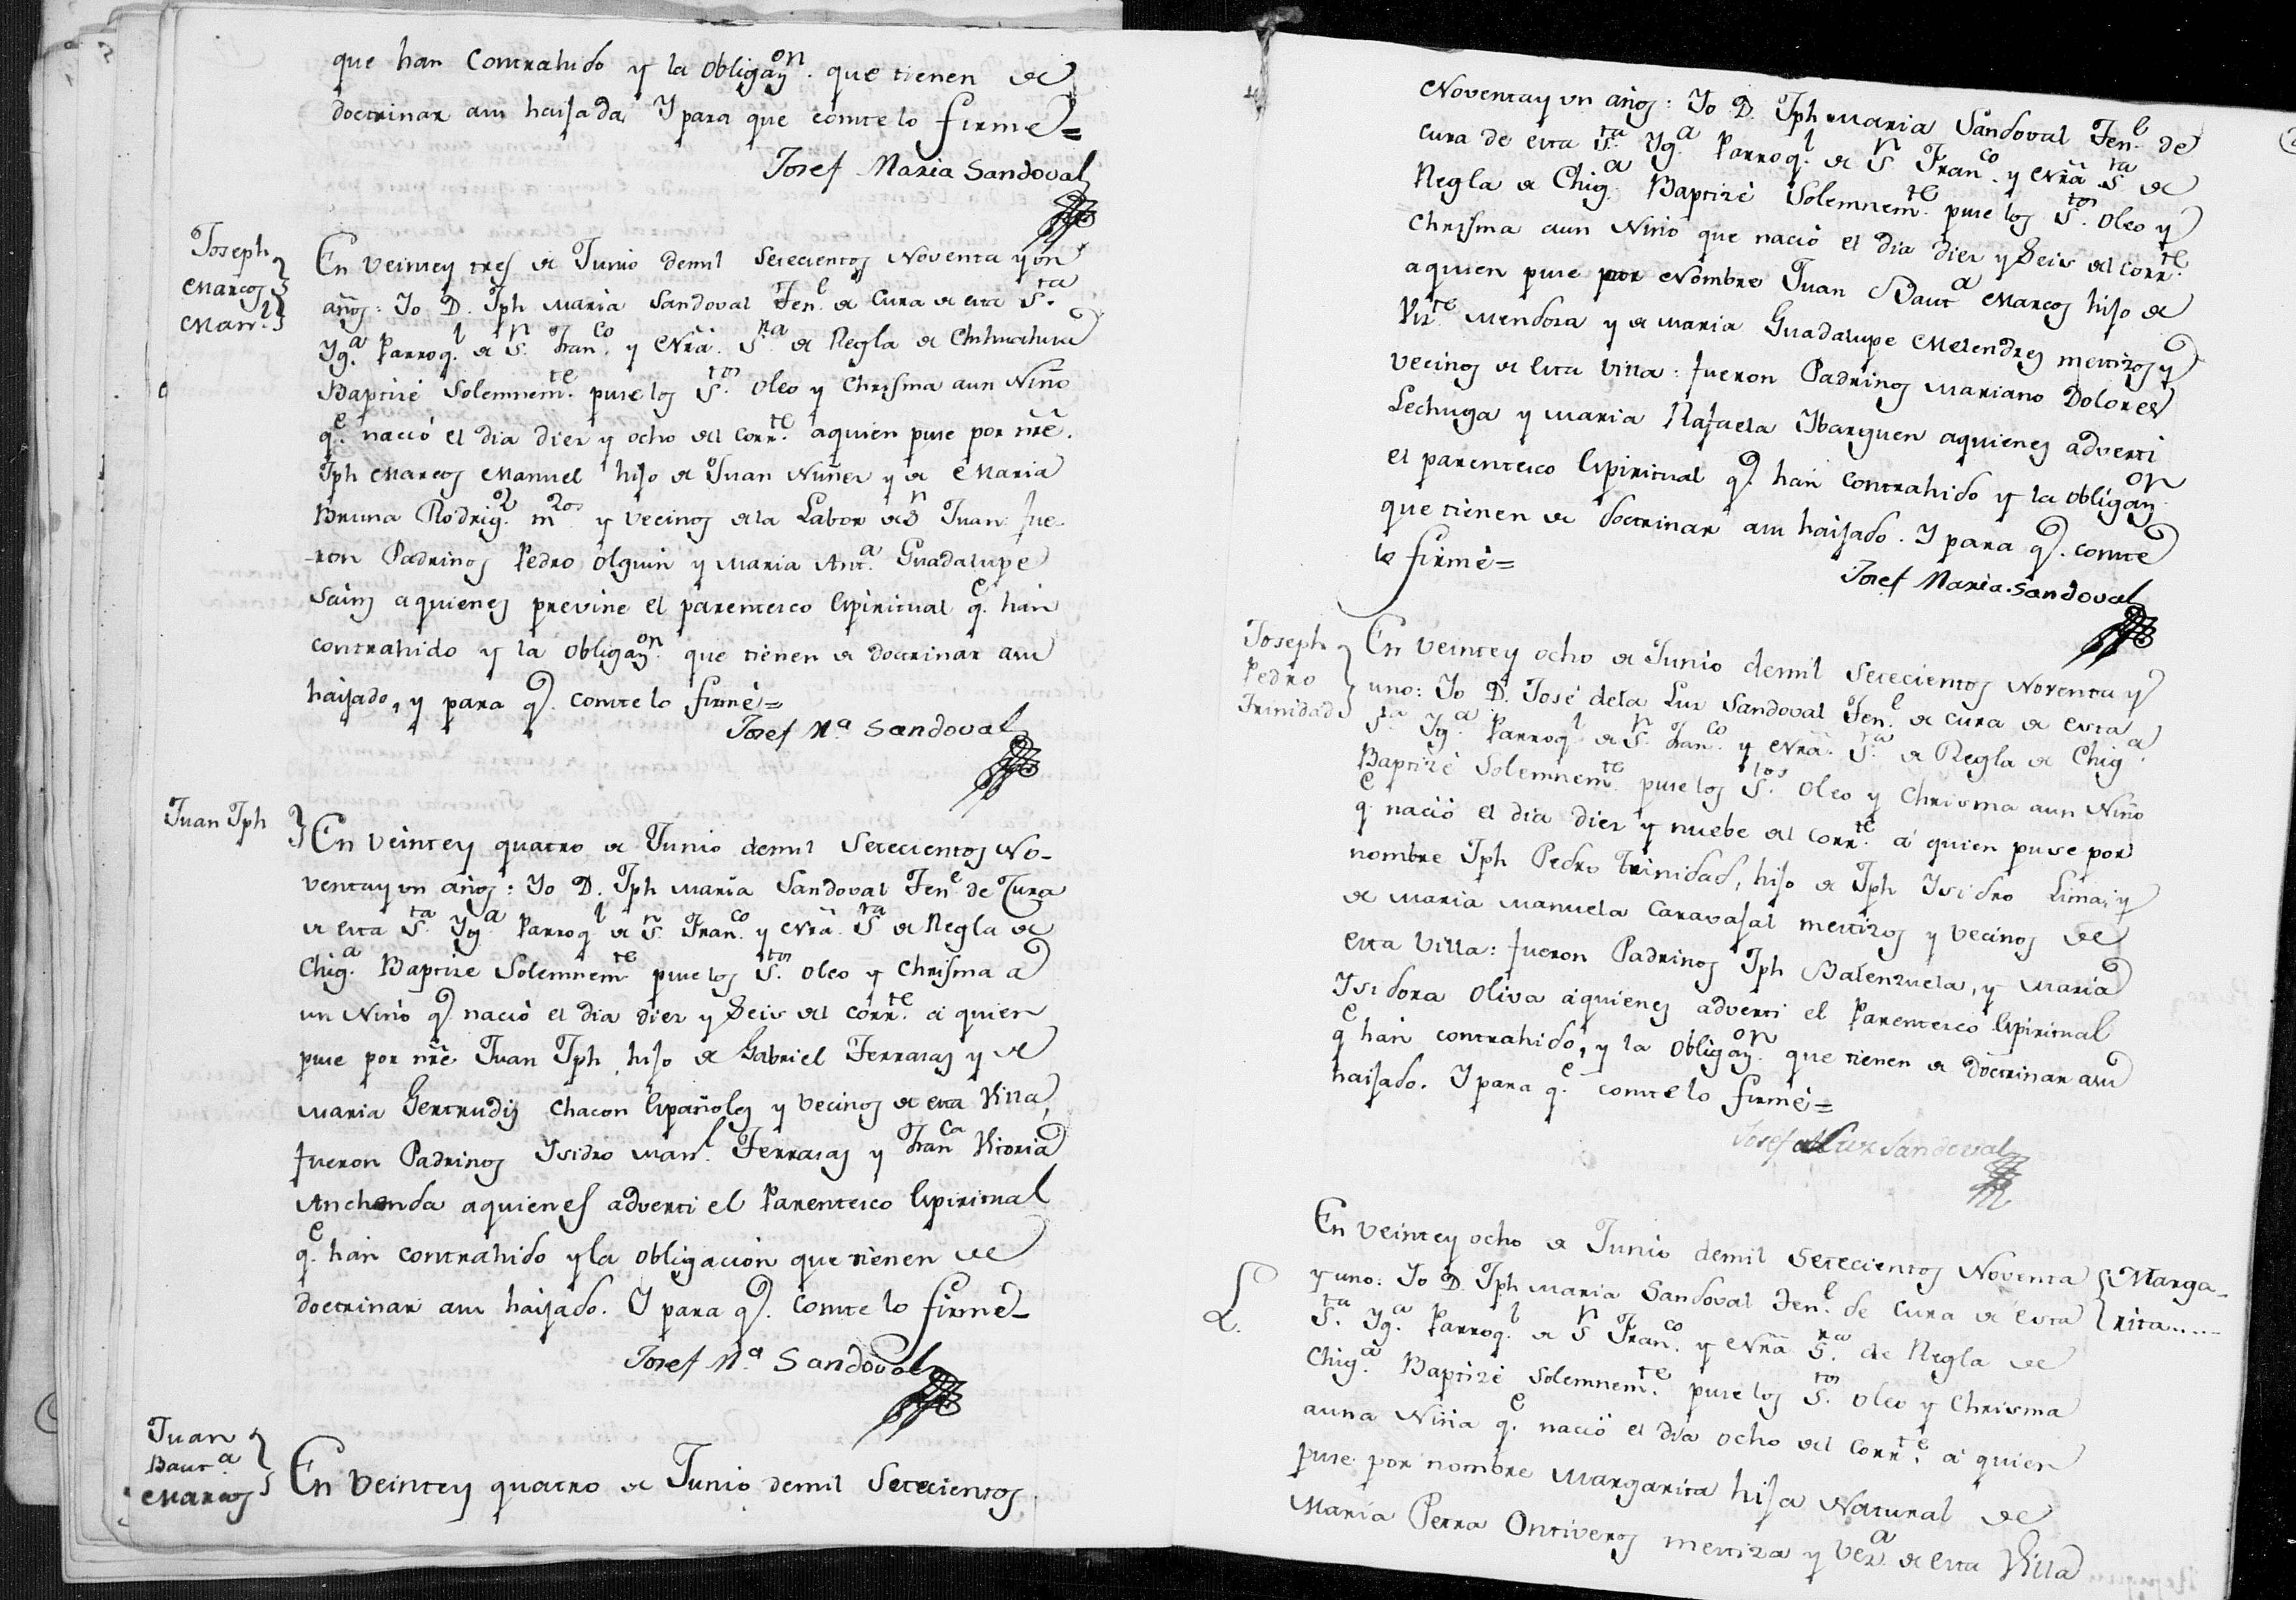 que han contrahido y la obligaⁿ. que tienen de
doctrinar a su haijada Y para que conste lo firmé=
Josef Maria Sandoval
Joseph
Marcos
Manˡ.
En veintey tres de Junio demil Setecientos Noventa y un
años: Yo D. Jph Maria Sandoval Tenᵉ. de Cura de esta Sᵗᵃ.
Ygᵃ. Parroqˡ. de Sⁿ. Franᶜᵒ. y Nrã. Sʳᵃ. de Regla de Chihuahua
Baptizé Solemnemᵗᵉ. puse los Sᵗᵒˢ. Oleo y Chrisma aun Niño
qᵉ. nació el dia diez y ocho del Corrᵗᵉ. aquien puse por nr̃e.
Jph Marcos Manuel hijo de Juan Nuñez y de Maria
Bruna Rodrigᶻ. mᶻᵒˢ y vecinos dela Labor de Sⁿ Juan: fue-
-ron Padrinos Pedro Olguin y Maria Antᵃ. Guadalupe
Sains aquienes previne el parentesco Espiritual qᵉ. han
contrahido y la obligaⁿ. que tienen de doctrinar a su
haijado, y para q. conste lo firmé=
Josef Mᵃ. Sandoval
Juan Jph
En veintey quatro de Junio demil Setecientos No-
ventay un años: Yo D. Jph Maria Sandoval Tenᵉ de Cura
de esta Sᵗᵃ. Ygᵃ. Parroqˡ de Sⁿ. Franᶜᵒ. y Nrã. Sʳᵃ de Regla de
Chigᵃ. Baptize Solemnemᵗᵉ puse los Sᵗᵒˢ. Oleo y Chrisma a
un Niño q. nació el dia diez y Seis del Corrᵗᵉ. á quien
puse por nr̃e Juan Jph, hijo de Gabriel Terrasas y de
Maria Gertrudis Chacon Españoles y Vecinos de esta Villa,
fueron Padrinos Ysidro Manˡ. Terrasas y Franᶜᵃ Vitoria
Anchonda aquienes adverti el Parentesco Espiritual
qᵉ. han contrahido y la obligación que tienen de
doctrinar a su haijado. Y para q. conste lo firmé_
Josef Mᵃ. Sandoval
Juan
Bautᵃ.
Marcos
En Veintey quatro de Junio demil Setecientos
Noventay un años: Yo D. Jph Maria Sandoval Tenᵉ. de
cura de esta Sᵗᵃ. Ygᵃ. Parroqˡ. de Sⁿ Franᶜᵒ. y Nrã Sʳᵃ de
Regla de Chigᵃ. Baptizé Solemnemᵗᵉ. puse los Sᵗᵒˢ. Oleo y
Chrisma aun Niño que nació el dia diez y Seis del Corrᵗᵉ.
aquien puse por Nombre Juan Bautᵃ Marcos hijo de
Vizᵗᵉ Mendosa y de Maria Guadalupe Melendres mestizos y
vecinos de Esta Villa: fueron Padrinos Mariano Dolores
Lechuga y Maria Rafaela Ybarguen aquienes adverti
el parentesco Espiritual q. han contrahido y la obligaⁿ
que tienen de doctrinar a su haijado. Y para q. conste
lo firmé=
Josef Maria Sandoval
Joseph
Pedro
Trinidad
En Veintey ocho de Junio demil Setecientos Noventa y
uno: Yo D. José dela Luz Sandoval Tenᵉ. de cura de esta
Sᵗᵃ. Ygᵃ. Parroqˡ de Sⁿ. Franᶜᵒ. y Nrã. Sʳᵃ. de Regla de Chigᵃ.
Baptizé Solemnemᵗᵉ. puse los Sᵗᵒˢ. Oleo y Chrisma aun Niño
qᵉ nació el dia diez y nuebe del Corrᵗᵉ. á quien puse por
nombre Jph Pedro Trinidad, hijo de Jph Ysidro Lima, y
de Maria Manuela Caravajal mestizos y Vecinos de
esta Villa: fueron Padrinos Jph Balenzuela, y Maria
Ysidora Oliva áquienes adverti el Parentesco Espiritual
qᵉ han contrahido, y la obligaⁿ. que tienen de doctrinar a su
haijado. Y para qᵉ. conste lo firmé=
Josef de la Luz Sandoval
En Veintey ocho de Junio demil Setecientos Noventa
y uno: Yo D. Jph Maria Sandoval Tenᵉ. de Cura de esta
Sᵗᵃ. Ygᵃ. Parroqˡ. de Sⁿ Franᶜᵒ. y Nrã Sʳᵃ. de Regla de
Chigᵃ. Baptizé Solemnemᵗᵉ. puse los Sᵗᵒˢ. Oleo y Chrisma
auna Niña qᵉ. nació el dia ocho del Corrᵗᵉ. á quien
puse por nombre Margarita hija Natural de
Maria Petra Ontiveros mestiza y Vezᵃ. de esta Villa
Marga-
rita.....